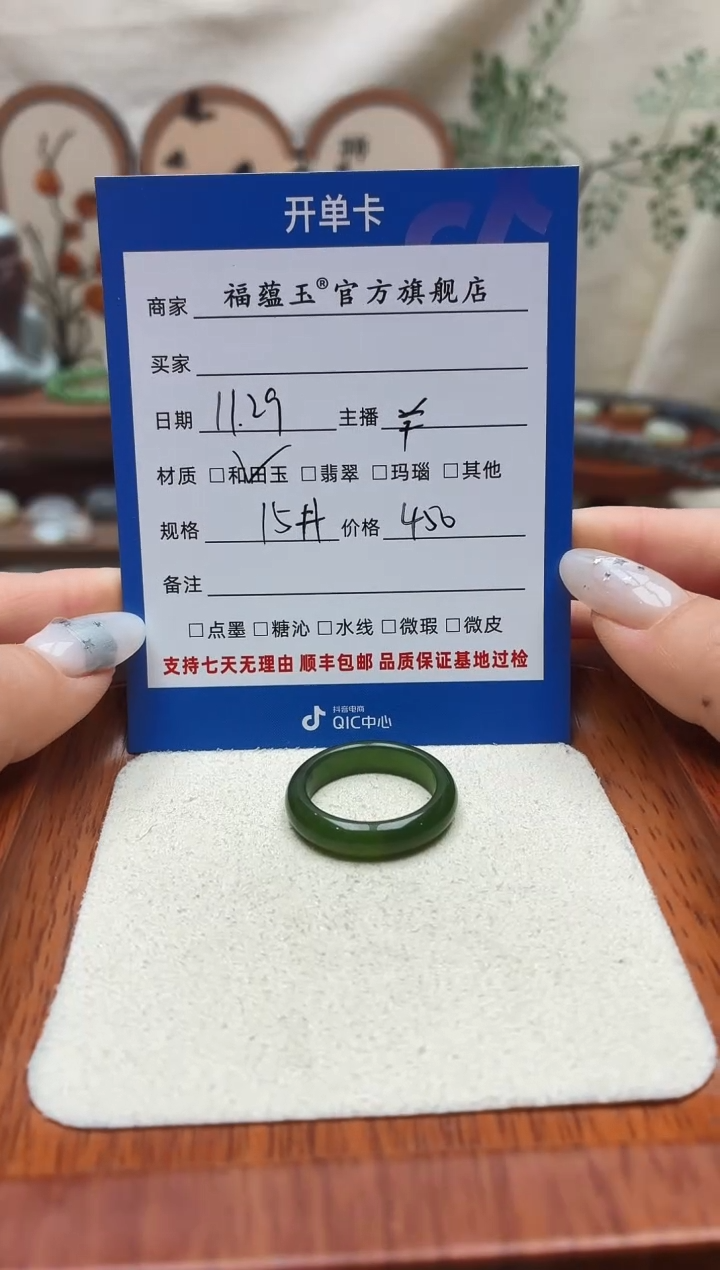 开单卡
商家 福蕴玉®官方旗舰店
买家
日期 11.29 主播 羊
材质 □和田玉 □翡翠 □玛瑙 □其他
规格 15# 价格 450
备注
□点墨 □糖沁 □水线 □微瑕 □微皮
支持七天无理由 顺丰包邮 品质保证基地过检
抖音电商
QIC中心